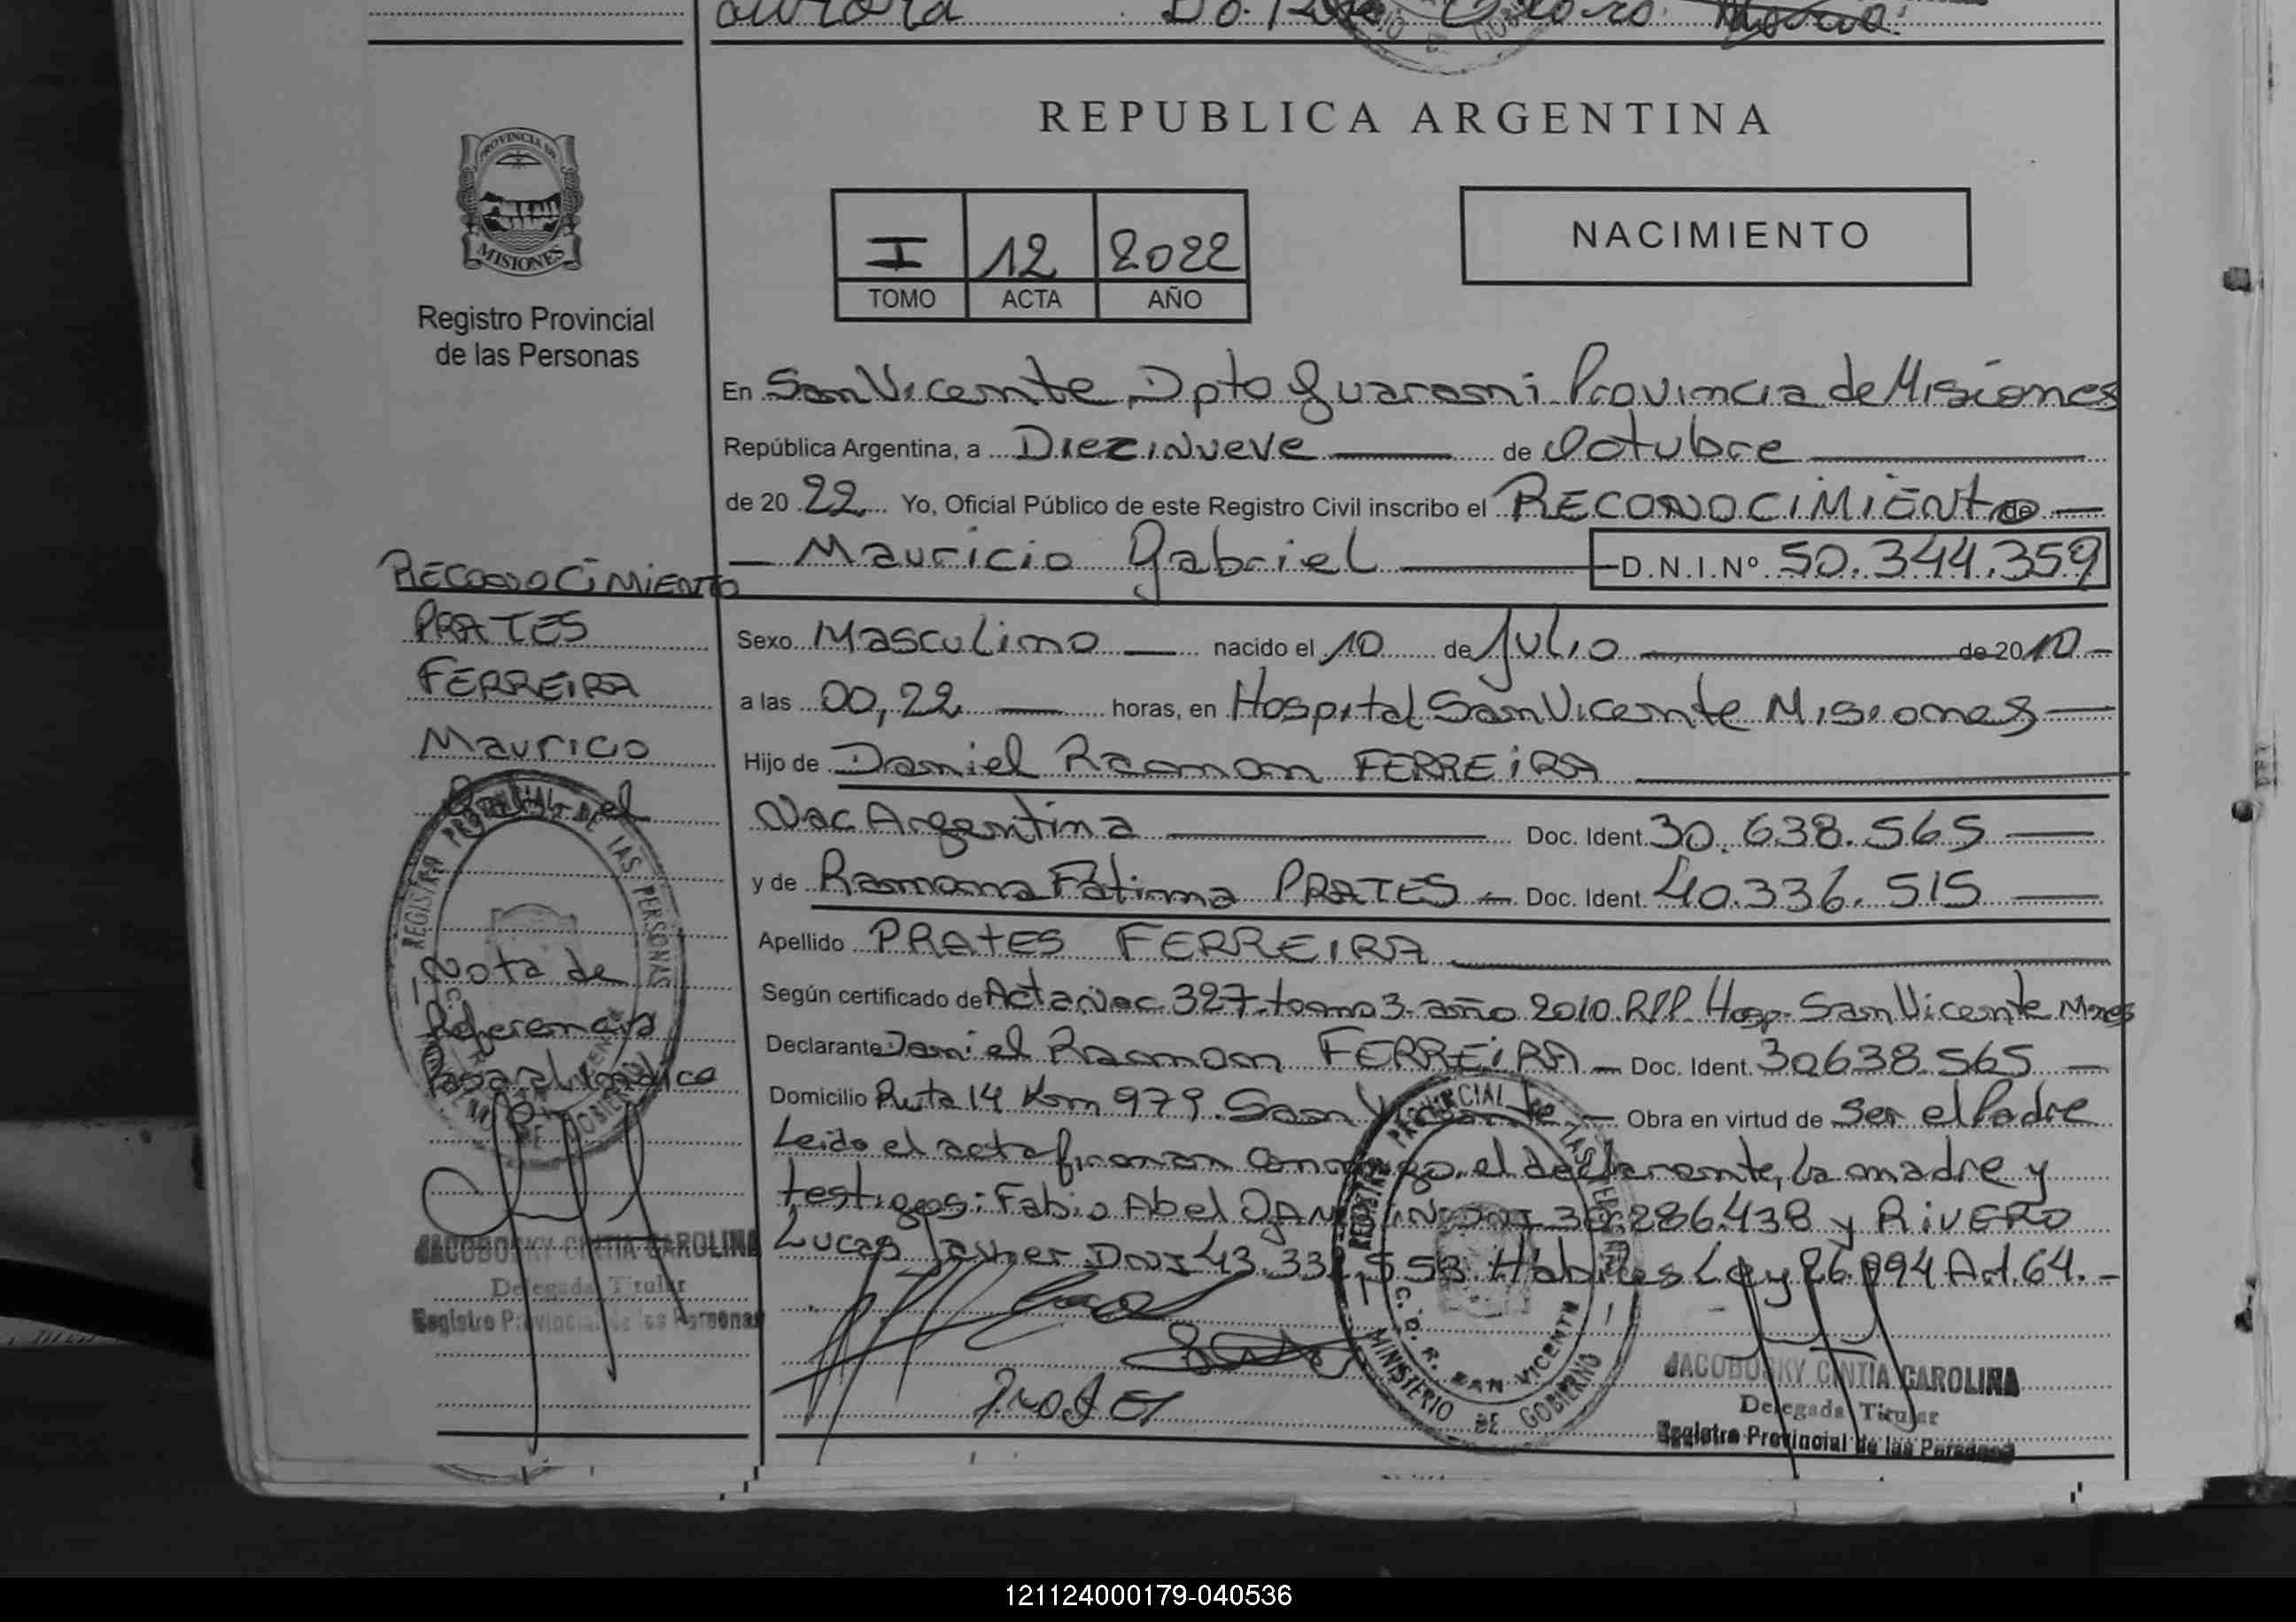 aurora
REPUBLICA ARGENTINA
PROVINCIA DE
MISIONES
Registro Provincial
de las Personas
I 12 2022
TOMO ACTA AÑO
NACIMIENTO
En San Vicente, Dpto Guarani Provincia de Misiones
República Argentina, a Diezinueve de Octubre
de 20 22 Yo, Oficial Público de este Registro Civil inscribo el RECONOCIMIENTO de
Mauricio Gabriel D.N.I.Nº 50.344.359
RECONOCIMIENTO
PRATES
FERREIRA
Mauricio
Gabriel
Sexo Masculino nacido el 10 de Julio de 2010
a las 00,22 horas, en Hospital San Vicente Misiones
Hijo de Daniel Ramon FERREIRA
Nac Argentina Doc. Ident. 30.638.565
y de Ramona Fatima PRATES Doc. Ident. 40.336.515
Apellido PRATES FERREIRA
Según certificado de Acta Nac 327-tomo 3-año 2010. RPP. Hosp. San Vicente Mnes
Declarante Daniel Ramon FERREIRA Doc. Ident. 30638.565
Domicilio Ruta 14 Km 979. San Vicente Obra en virtud de Ser el Padre
Leido el acta firman conmigo el declarante, la madre y
testigos: Fabio Abel DNI 30.286.438 y RIVERO
Lucas Javier DNI 43.332.553 Habiles Ley 26.994 Art. 64.
Nota de
Referencia
REGISTRO PROVINCIAL DE LAS PERSONAS
MINISTERIO DE GOBIERNO
JACOBOSKY CINTIA CAROLINA
Delegada Titular
Registro Provincial de las Personas
REGISTRO PROVINCIAL DE LAS PERSONAS
C. D. R. SAN VICENTE
MINISTERIO DE GOBIERNO
Prates
JACOBOSKY CINTIA CAROLINA
Delegada Titular
Registro Provincial de las Personas
121124000179-040536